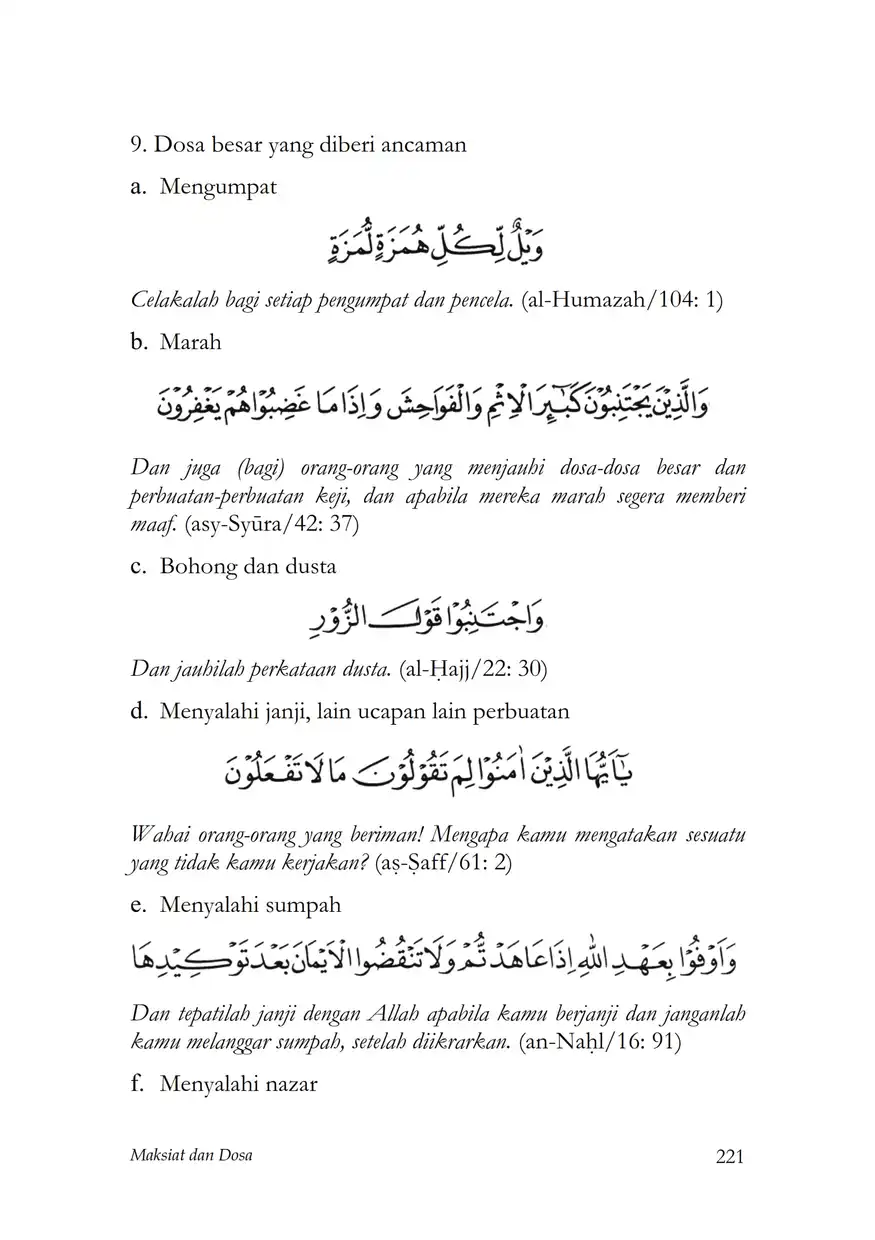 9. Dosa besar yang diberi ancaman
a. Mengumpat
وَيْلٌ لِّكُلِّ هُمَزَةٍ لُّمَزَةٍ
Celakalah bagi setiap pengumpat dan pencela. (al-Humazah/104: 1)
b. Marah
وَالَّذِيْنَ يَجْتَنِبُوْنَ كَبٰۤىِٕرَ الْاِثْمِ وَالْفَوَاحِشَ وَاِذَا مَا غَضِبُوْا هُمْ يَغْفِرُوْنَ
Dan juga (bagi) orang-orang yang menjauhi dosa-dosa besar dan
perbuatan-perbuatan keji, dan apabila mereka marah segera memberi
maaf. (asy-Syūra/42: 37)
c. Bohong dan dusta
وَاجْتَنِبُوْا قَوْلَ الزُّوْرِ
Dan jauhilah perkataan dusta. (al-Ḥajj/22: 30)
d. Menyalahi janji, lain ucapan lain perbuatan
يٰٓاَيُّهَا الَّذِيْنَ اٰمَنُوْا لِمَ تَقُوْلُوْنَ مَا لَا تَفْعَلُوْنَ
Wahai orang-orang yang beriman! Mengapa kamu mengatakan sesuatu
yang tidak kamu kerjakan? (aṣ-Ṣaff/61: 2)
e. Menyalahi sumpah
وَاَوْفُوْا بِعَهْدِ اللّٰهِ اِذَا عَاهَدْتُّمْ وَلَا تَنْقُضُوا الْاَيْمَانَ بَعْدَ تَوْكِيْدِهَا
Dan tepatilah janji dengan Allah apabila kamu berjanji dan janganlah
kamu melanggar sumpah, setelah diikrarkan. (an-Naḥl/16: 91)
f. Menyalahi nazar
Maksiat dan Dosa 221